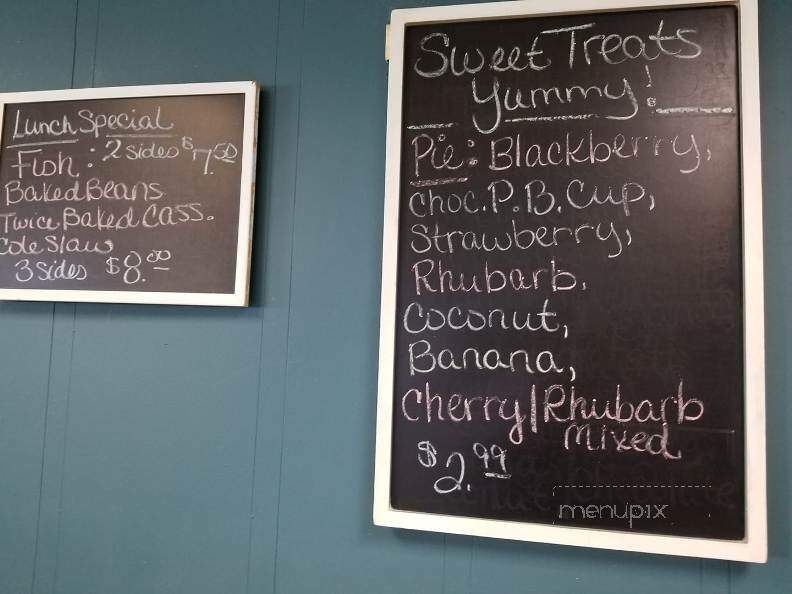 Lunch Special
Fish: 2 sides $7.50
Baked Beans
Twice Baked Cass.
Cole Slaw
3 sides $8.00
Sweet Treats
Yummy!
Pie: Blackberry,
Choc. P.B. Cup,
Strawberry,
Rhubarb,
Coconut,
Banana,
Cherry/Rhubarb
Mixed
$2.99
menupix